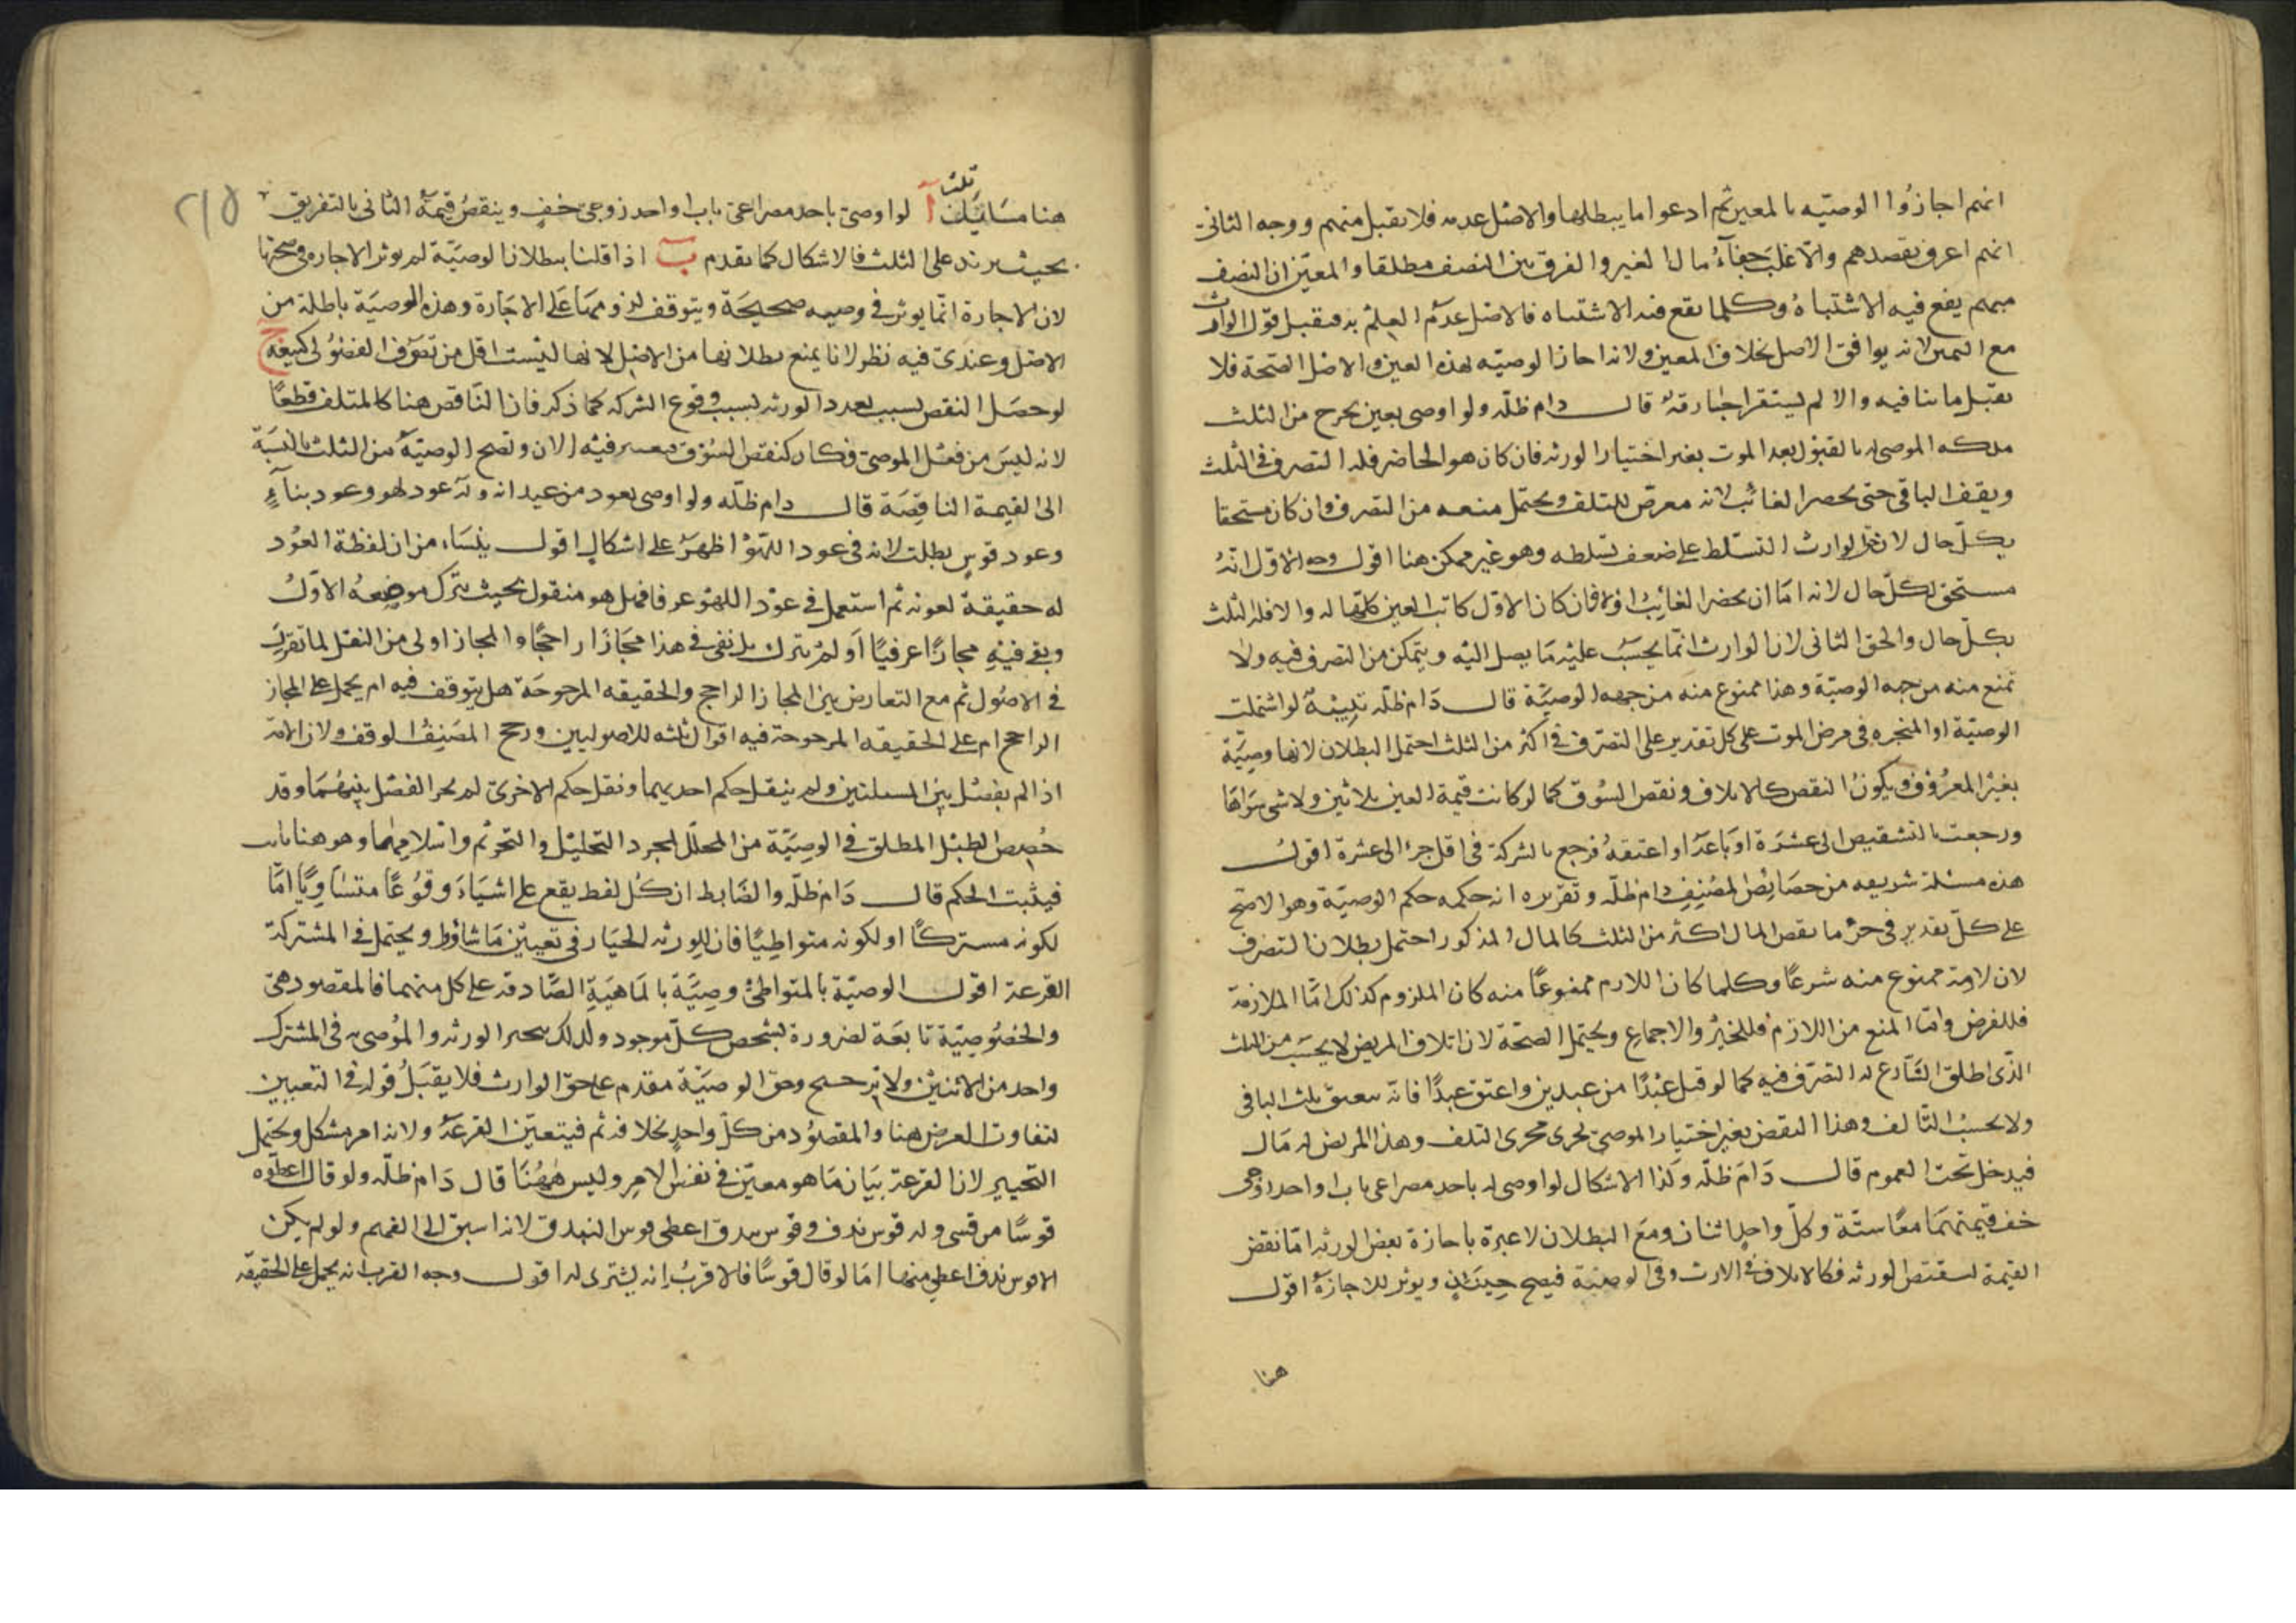 انهم اجازوا الوصيه بالمعين ثم ادعوا ما يبطلها والاصل عدمه فلا يقبل منهم ووجه الثاني
انهم اعرف بقصدهم والاغلب خفاء مال الغير والفرق بين النصف مطلقا والمعين ان النصف
مبهم يقع فيه الاشتباه وكلما يقع فيه الاشتباه فالاصل عدم العلم به فيقبل قول الوارث
مع اليمين لانه يوافق الاصل بخلاف المعين ولانه اجاز الوصيه بهذه العين والاصل الصحة فلا
يقبل ما ينافيه والا لم يستقر اجبار قط قال دام ظله ولو اوصى بعين يخرج من الثلث
ملكه الموصى له بالقبول بعد الموت بغير اختيار الورثه فان كان هو الحاضر فله التصرف في الثلث
ويقف الباقي حتى يحضر الغائب لانه معرض للتلف ويحتمل منعه من التصرف وان كان مستحقا
بكل حال لان حق الوارث التسلط على ضعف تسلطه وهو غير ممكن هنا اقول وجه الاول انه
مستحق لكل حال لانه اما ان يحضر الغائب اولا فان كان الاول كانت العين كلها له والا فله الثلث
بكل حال والحق الثاني لان الوارث انما يحسب عليه ما يصل اليه ويتمكن من التصرف فيه ولا
يمنع منه من جهه الوصية وهذا ممنوع منه من جهه الوصية قال دام ظله تنبيه لو اشتملت
الوصية او المنجزه في مرض الموت على كل تقدير على التصرف في اكثر من الثلث احتمل البطلان لانها وصية
بغير المعروف ويكون النقص كالاتلاف ونقص السوق كما لو كانت قيمة العين ثلاثين ولا شي سواها
ورجعت بالتشقيص الى عشرة او باعه او اعتقه فرجع بالشركة في اقل جزء الى عشرة اقول
هذه مسئلة شريفه من خصائص المصنف دام ظله وتقريره انه حكمه حكم الوصية وهو الاصح
على كل تقدير في جزء ما يقص المال اكثر من الثلث كالمال المذكور احتمل بطلان التصرف
لان لازمه ممنوع منه شرعا وكلما كان اللازم ممنوعا منه كان الملزوم كذلك اما الملازمة
فللفرض واما المنع من اللازم فللخبر والاجماع ويحتمل الصحة لان اتلاف المريض لا يحسب من الثلث
الذي اطلق الشارع له التصرف فيه كما لو قتل عبدا من عبدين واعتق عبدا فانه يعتق ثلث الباقي
ولا يحسب التالف وهذا النقص بغير اختيار الموصي يجري مجرى التلف وهذا المريض له مال
فيدخل تحت العموم قال دام ظله وكذا الاشكال لو اوصى له باحد مصراعي باب او احد زوجي
خف قيمتهما معا ستة وكل واحد اثنان ومع البطلان لا عبرة باجازة بعض الورثه اما نقص
القيمة لنقص الورثه فكالاتلاف في الارث وفي الوصية فيصح حينئذ ويوثر للاجازة اقول
هنا
٢١٥
هنا مسائل ثلث آ لو اوصى باحد مصراعي باب او احد زوجي خف وينقص قيمة الثاني بالتفريق
بحيث يزيد على الثلث فالاشكال كما تقدم ب اذا قلنا ببطلان الوصية لم يوثر الاجازه في صحتها
لان الاجازة انما يوثر في وصيه صحيحة ويتوقف لزومها على الاجازة وهذه الوصية باطلة من
الاصل وعندي فيه نظر لانا نمنع بطلانها من الاصل لانها ليست اقل من تصرف الفضولي كبيعه ج
لو حصل النقص بسبب تعدد الورثه بسبب وقوع الشركه كما ذكر فان الناقص هنا كالمتلف قطعا
لانه ليس من فعل الموصي فكان كنقص السوق فيعتبر فيه الان وتصح الوصية من الثلث بالنسبة
الى القيمة الناقصة قال دام ظله ولو اوصى بعود من عيدانه وله عود لهو وعود بناء
وعود قوس بطلت لانه في عود اللهو اظهر على اشكال اقول ينشاء من ان لفظة العود
له حقيقة لعونه ثم استعمل في عود اللهو عرفا فهل هو منقول بحيث يترك موضعه الاول
وبقي فيه مجازا عرفيا او لم يترك بل بقي في هذا مجازا راجحا والمجاز اولى من النقل لما تقرر
في الاصول ثم مع التعارض بين المجاز الراجح والحقيقه المرجوحة هل يتوقف فيه ام يحمل على المجاز
الراجح ام على الحقيقه المرجوحة فيه اقوال ثلثه للاصوليين ورجح المصنف الوقف ولان الامة
اذا لم يفصل بين المسلتين ولم ينقل حكم احديهما ونقل حكم الاخرى لم يجز الفصل بينهما وقد
خصص الطبل المطلق في الوصية من المحلل لمجرد التحليل والتحريم واسلامهما وهو هنا ثابت
فيثبت الحكم قال دام ظله والضابط ان كل لفظ يقع على اشياء وقوعا متساويا اما
لكونه مشتركا او لكونه متواطيا فان للورثه الخيار في تعيين ما شاؤا ويحتمل في المشتركة
القرعة اقول الوصية بالمتواطئ وصية بالماهية الصادقه على كل منهما فالمقصود هي
والخصوصية تابعة لضرورة تشخص كل موجود ولذلك يتخير الورثه والموصى به في المشترك
واحد من الاثنين ولا ترجيح وحق الوصية مقدم على حق الوارث فلا يقبل قوله في التعيين
لتفاوت الغرض هنا والمقصود من كل واحد بخلافه ثم فيتعين القرعة ولانه امر مشكل ويحتمل
التخيير لان القرعة بيان ما هو معين في نفس الامر وليس ههنا قال دام ظله ولو قال اعطوه
قوسا من قسي وله قوس ندف وقوس بندق اعطي قوس البندق لانه اسبق الى الفهم ولو لم يكن
الا قوس ندف اعطي منها اما لو قال قوسا فالاقرب انه يشترى له اقول وجه القرب انه يحمل على الحقيقه